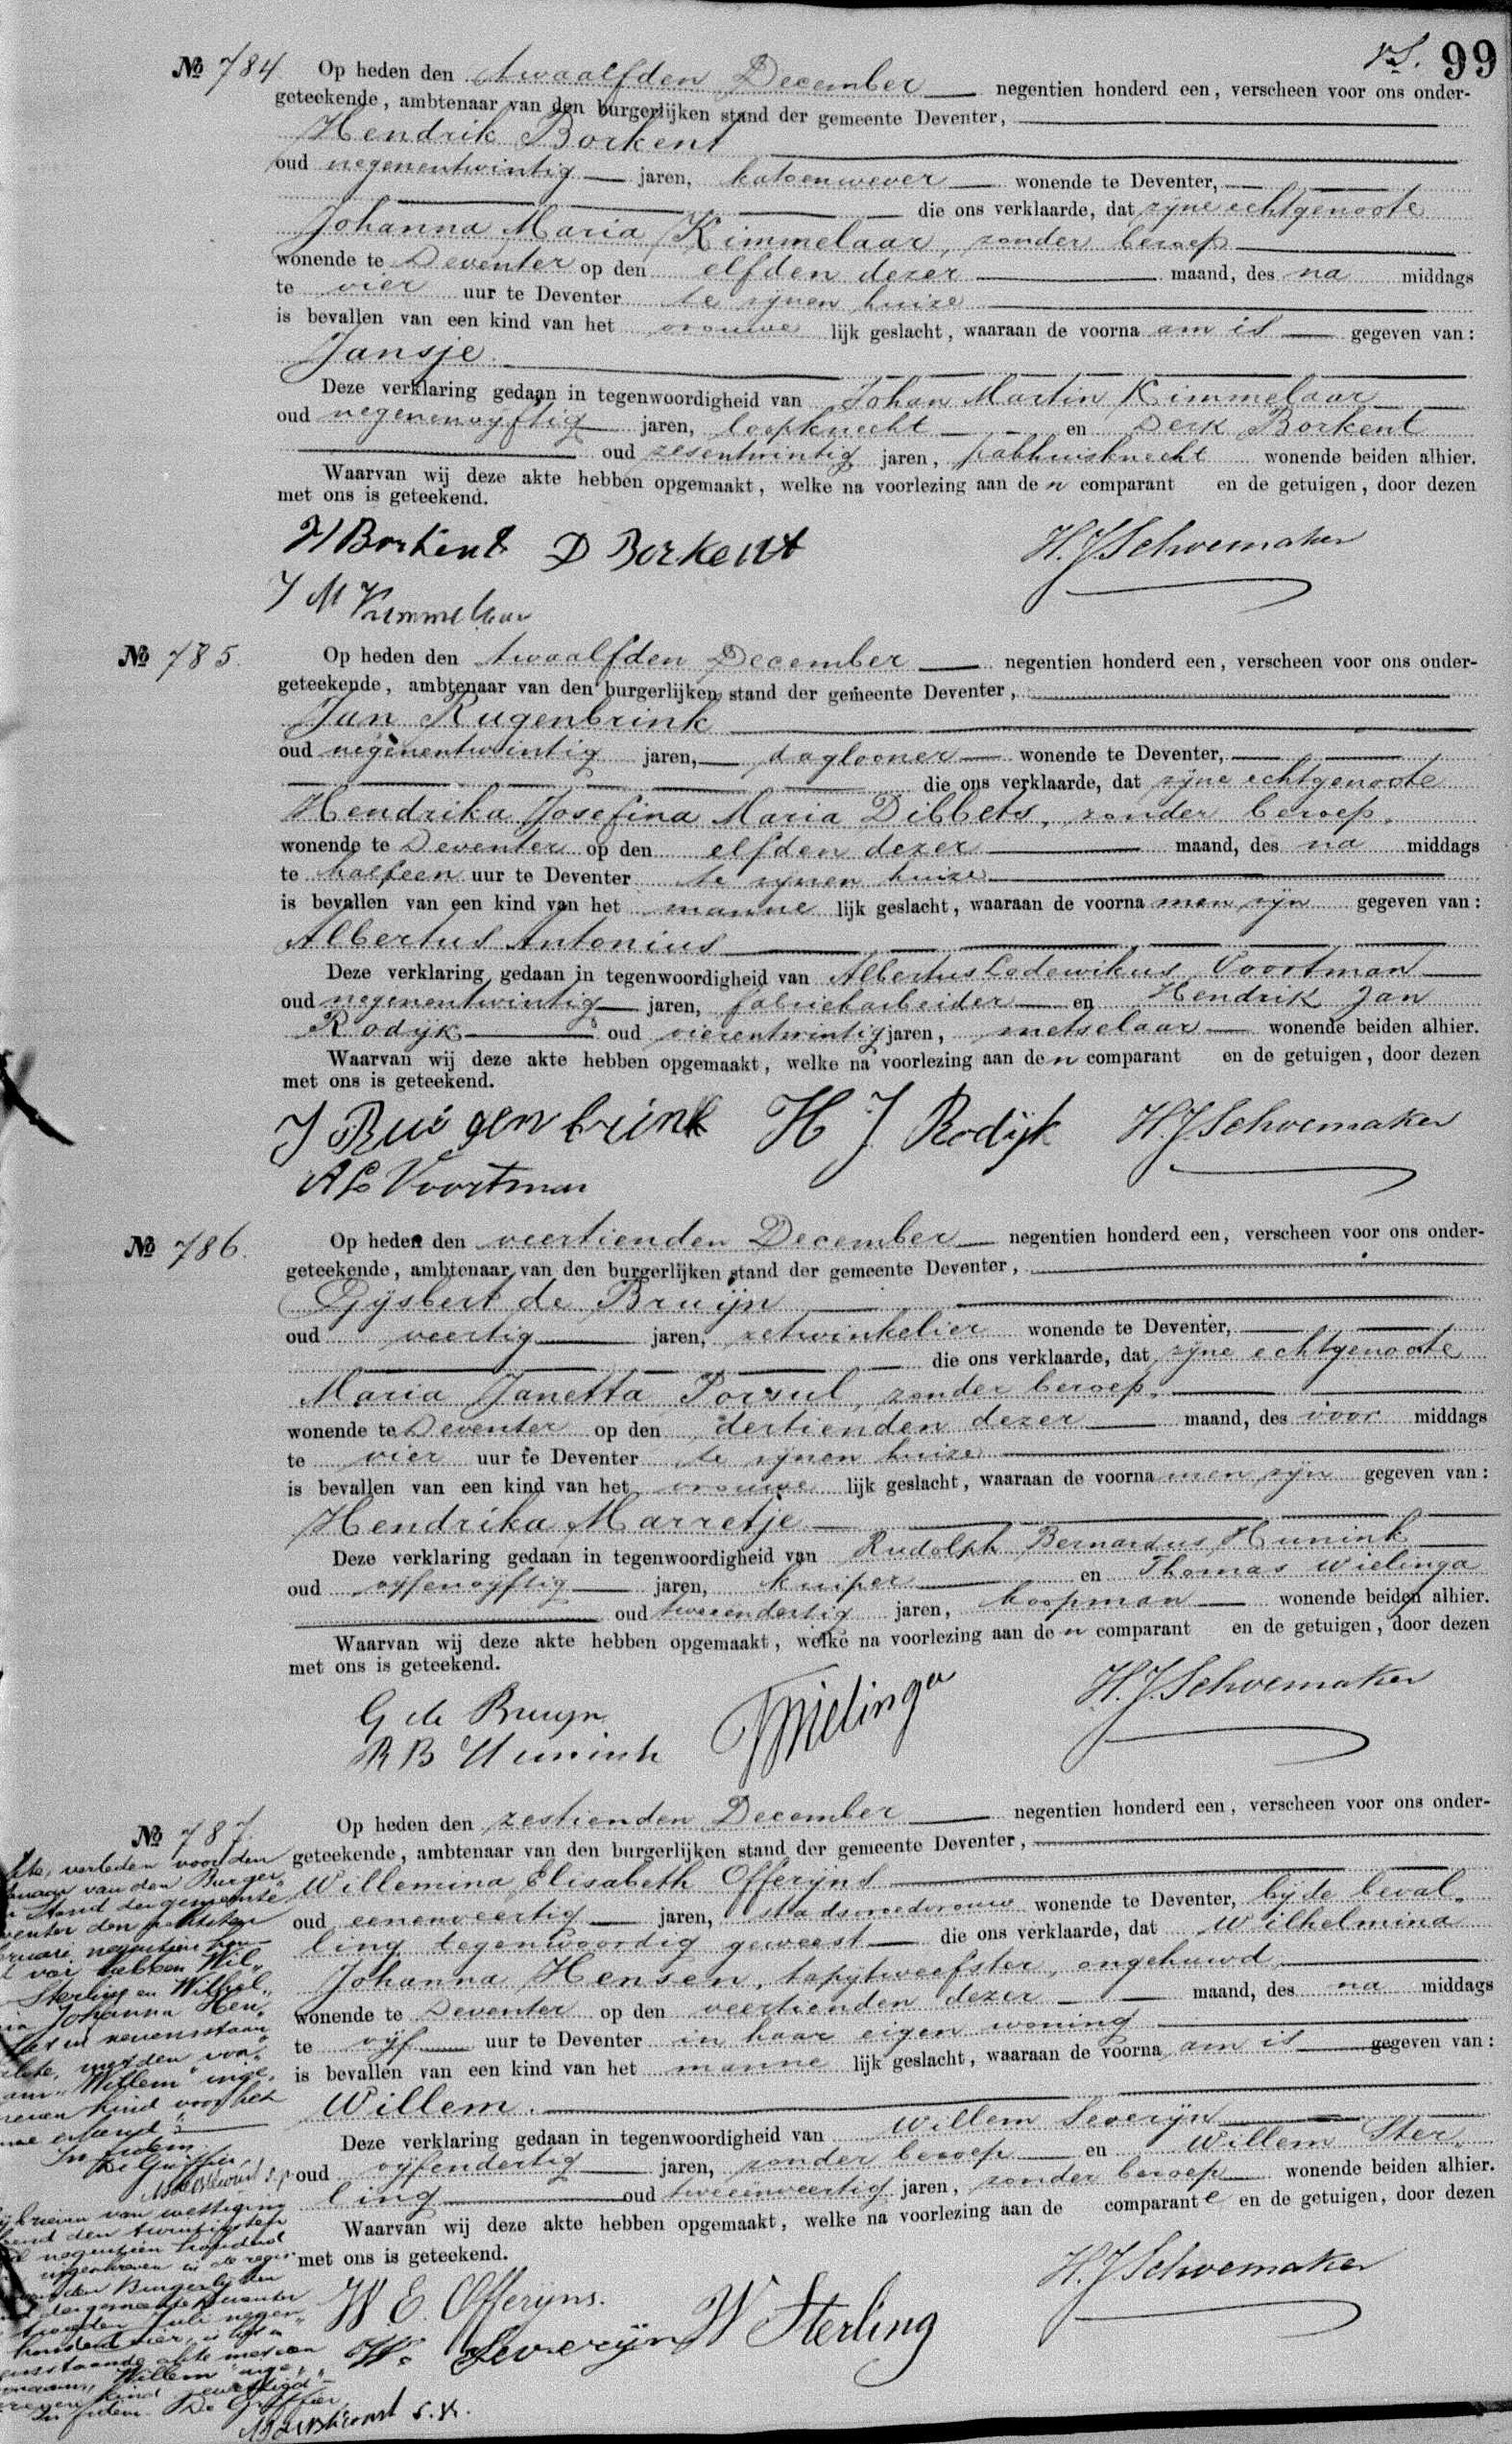 vS. 99
No 784. Op heden den twaalfden December negentien honderd een, verscheen voor ons onder-
geteekende, ambtenaar van den burgerlijken stand der gemeente Deventer,
Hendrik Borkent
oud negenentwintig jaren, katoenwever wonende te Deventer,
die ons verklaarde, dat zijne echtgenoote
Johanna Maria Kimmelaar, zonder beroep
wonende te Deventer op den elfden dezer maand, des na middags
te vier uur te Deventer te zijnen huize
is bevallen van een kind van het vrouwe lijk geslacht, waaraan de voorna am is gegeven van:
Jansje.
Deze verklaring gedaan in tegenwoordigheid van Johan Martin Kimmelaar
oud negenenvijftig jaren, loopknecht en Derk Borkent
oud zesentwintig jaren, pakhuisknecht wonende beiden alhier.
Waarvan wij deze akte hebben opgemaakt, welke na voorlezing aan de n comparant en de getuigen, door dezen
met ons is geteekend.
H Borkent D Borkent H.J. Schoemaker
J M Kimmelaar
No 785. Op heden den twaalfden December negentien honderd een, verscheen voor ons onder-
geteekende, ambtenaar van den burgerlijken stand der gemeente Deventer,
Jan Rugenbrink
oud negenentwintig jaren, daglooner wonende te Deventer,
die ons verklaarde, dat zijne echtgenoote
Hendrika Josefina Maria Dibbets, zonder beroep.
wonende te Deventer op den elfden dezer maand, des na middags
te halfeen uur te Deventer te zijnen huize
is bevallen van een kind van het manne lijk geslacht, waaraan de voorna men zijn gegeven van:
Albertus Antonius
Deze verklaring gedaan in tegenwoordigheid van Albertus Lodewikus Voortman
oud negenentwintig jaren, fabriekarbeider en Hendrik Jan
Rodijk oud vierentwintig jaren, metselaar wonende beiden alhier.
Waarvan wij deze akte hebben opgemaakt, welke na voorlezing aan de n comparant en de getuigen, door dezen
met ons is geteekend.
J Ruigenbrink H J Rodijk H.J. Schoemaker
A L Voortman
No 786. Op heden den veertienden December negentien honderd een, verscheen voor ons onder-
geteekende, ambtenaar van den burgerlijken stand der gemeente Deventer,
Gijsbert de Bruijn
oud veertig jaren, zetwinkelier wonende te Deventer,
die ons verklaarde, dat zijne echtgenoote
Maria Janetta Porsul, zonder beroep.
wonende te Deventer op den dertienden dezer maand, des voor middags
te vier uur te Deventer te zijnen huize
is bevallen van een kind van het vrouwe lijk geslacht, waaraan de voorna men zijn gegeven van:
Hendrika Marretje
Deze verklaring gedaan in tegenwoordigheid van Rudolph Bernardus Hunink
oud vijfenvijftig jaren, kuiper en Thomas Wielinga
oud tweeendertig jaren, koopman wonende beiden alhier.
Waarvan wij deze akte hebben opgemaakt, welke na voorlezing aan de n comparant en de getuigen, door dezen
met ons is geteekend.
G de Bruyn TWielinga H.J. Schoemaker
R B Hunink
No 787. Op heden den zestienden December negentien honderd een, verscheen voor ons onder-
geteekende, ambtenaar van den burgerlijken stand der gemeente Deventer,
Willemina Elisabeth Offerijns
oud eenenveertig jaren, stadsvroedvrouw wonende te Deventer, bij de beval-
ling tegenwoordig geweest die ons verklaarde, dat Wilhelmina
Johanna Hensen, tapijtweefster, ongehuwd,
wonende te Deventer op den veertienden dezer maand, des na middags
te vijf uur te Deventer in haar eigen woning
is bevallen van een kind van het manne lijk geslacht, waaraan de voorna am is gegeven van:
Willem.
Deze verklaring gedaan in tegenwoordigheid van Willem Severijn
oud vijfendertig jaren, zonder beroep en Willem Ster-
ling oud tweeënveertig jaren, zonder beroep wonende beiden alhier.
Waarvan wij deze akte hebben opgemaakt, welke na voorlezing aan de comparant e en de getuigen, door dezen
met ons is geteekend.
W E. Offerijns. H.J Schoemaker
W. Severijn W Sterling
verleden voor den
van den Burger-
Stand der gemeente
negentien hon-
hebben Wil-
Sterling en Wilhel-
Johanna Hen-
nevensstaan-
met den voor-
"Willem" inge-
kind voor het
erkend
In fidem
De Griffier,
brieven van wettiging
den twintigsten
negentien honderd
ingeschreven in de regis-
Burgerlijken
der gemeente Deventer
Juli negen-
honderd vier, is het in
akte met den
Willem inge-
kind gewettigd
In fidem De Griffier,